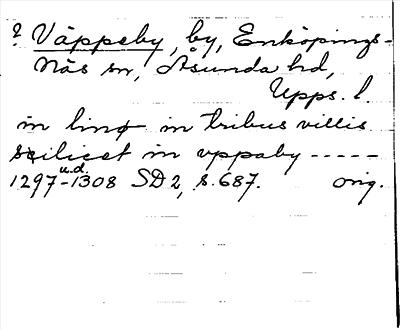 ? Väppeby, by, Enköpings-
Näs sn, Åsunda hd,
Upps. l.
in linø in tribus villis
scilicet in vppaby -----
u.d.
1297-1308 SD 2, s. 687. orig.